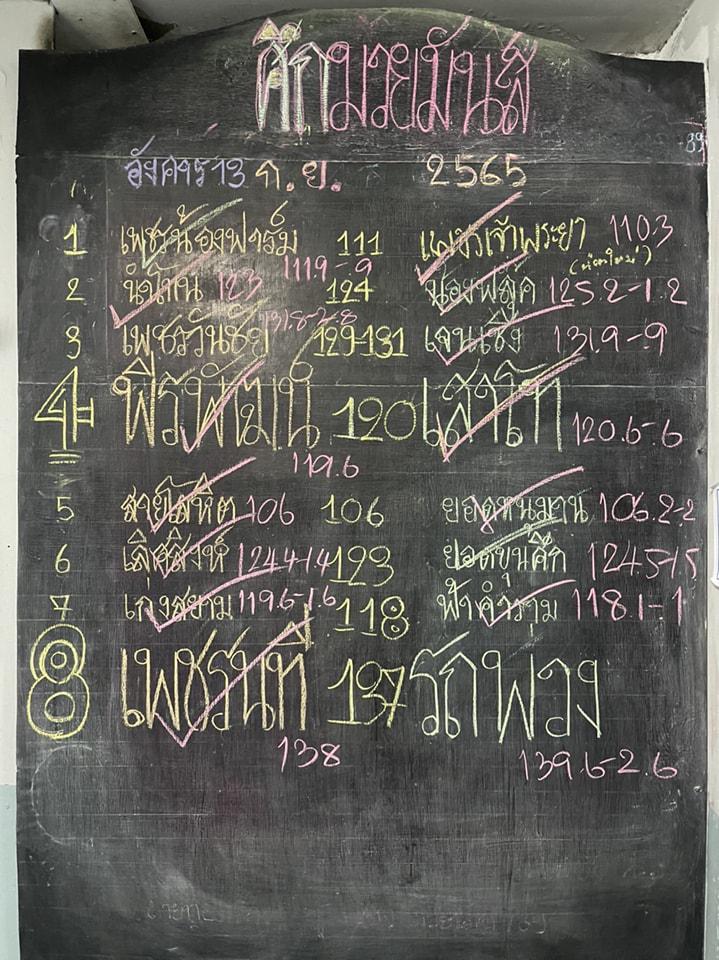 ศึกมวยมันส์
อังคาร 13 ก.ย. 2565
1 เพชรน้องฟาร์ม 111 เพชรเจ้าพระยา 110.3
111.9-.9
2 น้ำโขน 123 124 น้องฟลุ๊ค 125.2-1.2
131.8-.8
3 เพชรวันชัย 129-131 เจนเชิง 131.9-.9
4 พีรพัฒน์ 120 เสาโท 120.6-.6
119.6
5 สายโลหิต 106 106 ยอดหนุมาน 106.2-.2
6 เสือสิงห์ 124.4-1.4 123 ยอดขุนศึก 124.5-1.5
7 เก่งสยาม 119.6-1.6 118 ฟ้าคำราม 118.1-.1
8 เพชรนที 137 รักพวง
138 139.6-2.6